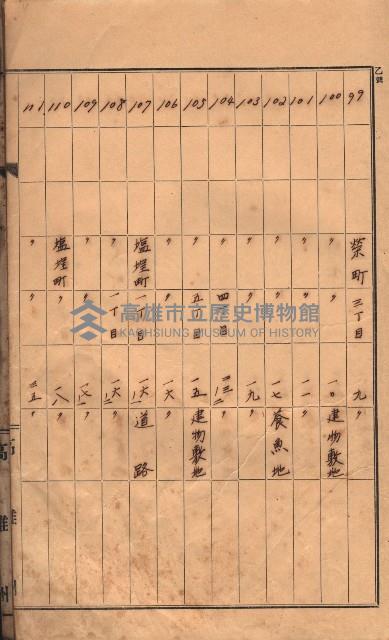 乙號
99 栄町 三丁目 九
100 〃 〃 一〇 建物敷地
101 〃 〃 一一 〃
102 〃 〃 一七 養魚地
103 〃 〃 一九 〃
104 〃 四丁目 〃
105 〃 五丁目 一五 建物敷地
106 〃 〃 一六 〃
107 塩埕町 一丁目 道路
108 〃 一丁目 〃
109 〃 〃 〃
110 塩埕町 〃 一八 〃
111 〃 〃 三五 〃
高雄州
高雄市立歷史博物館
KAOHSIUNG MUSEUM OF HISTORY